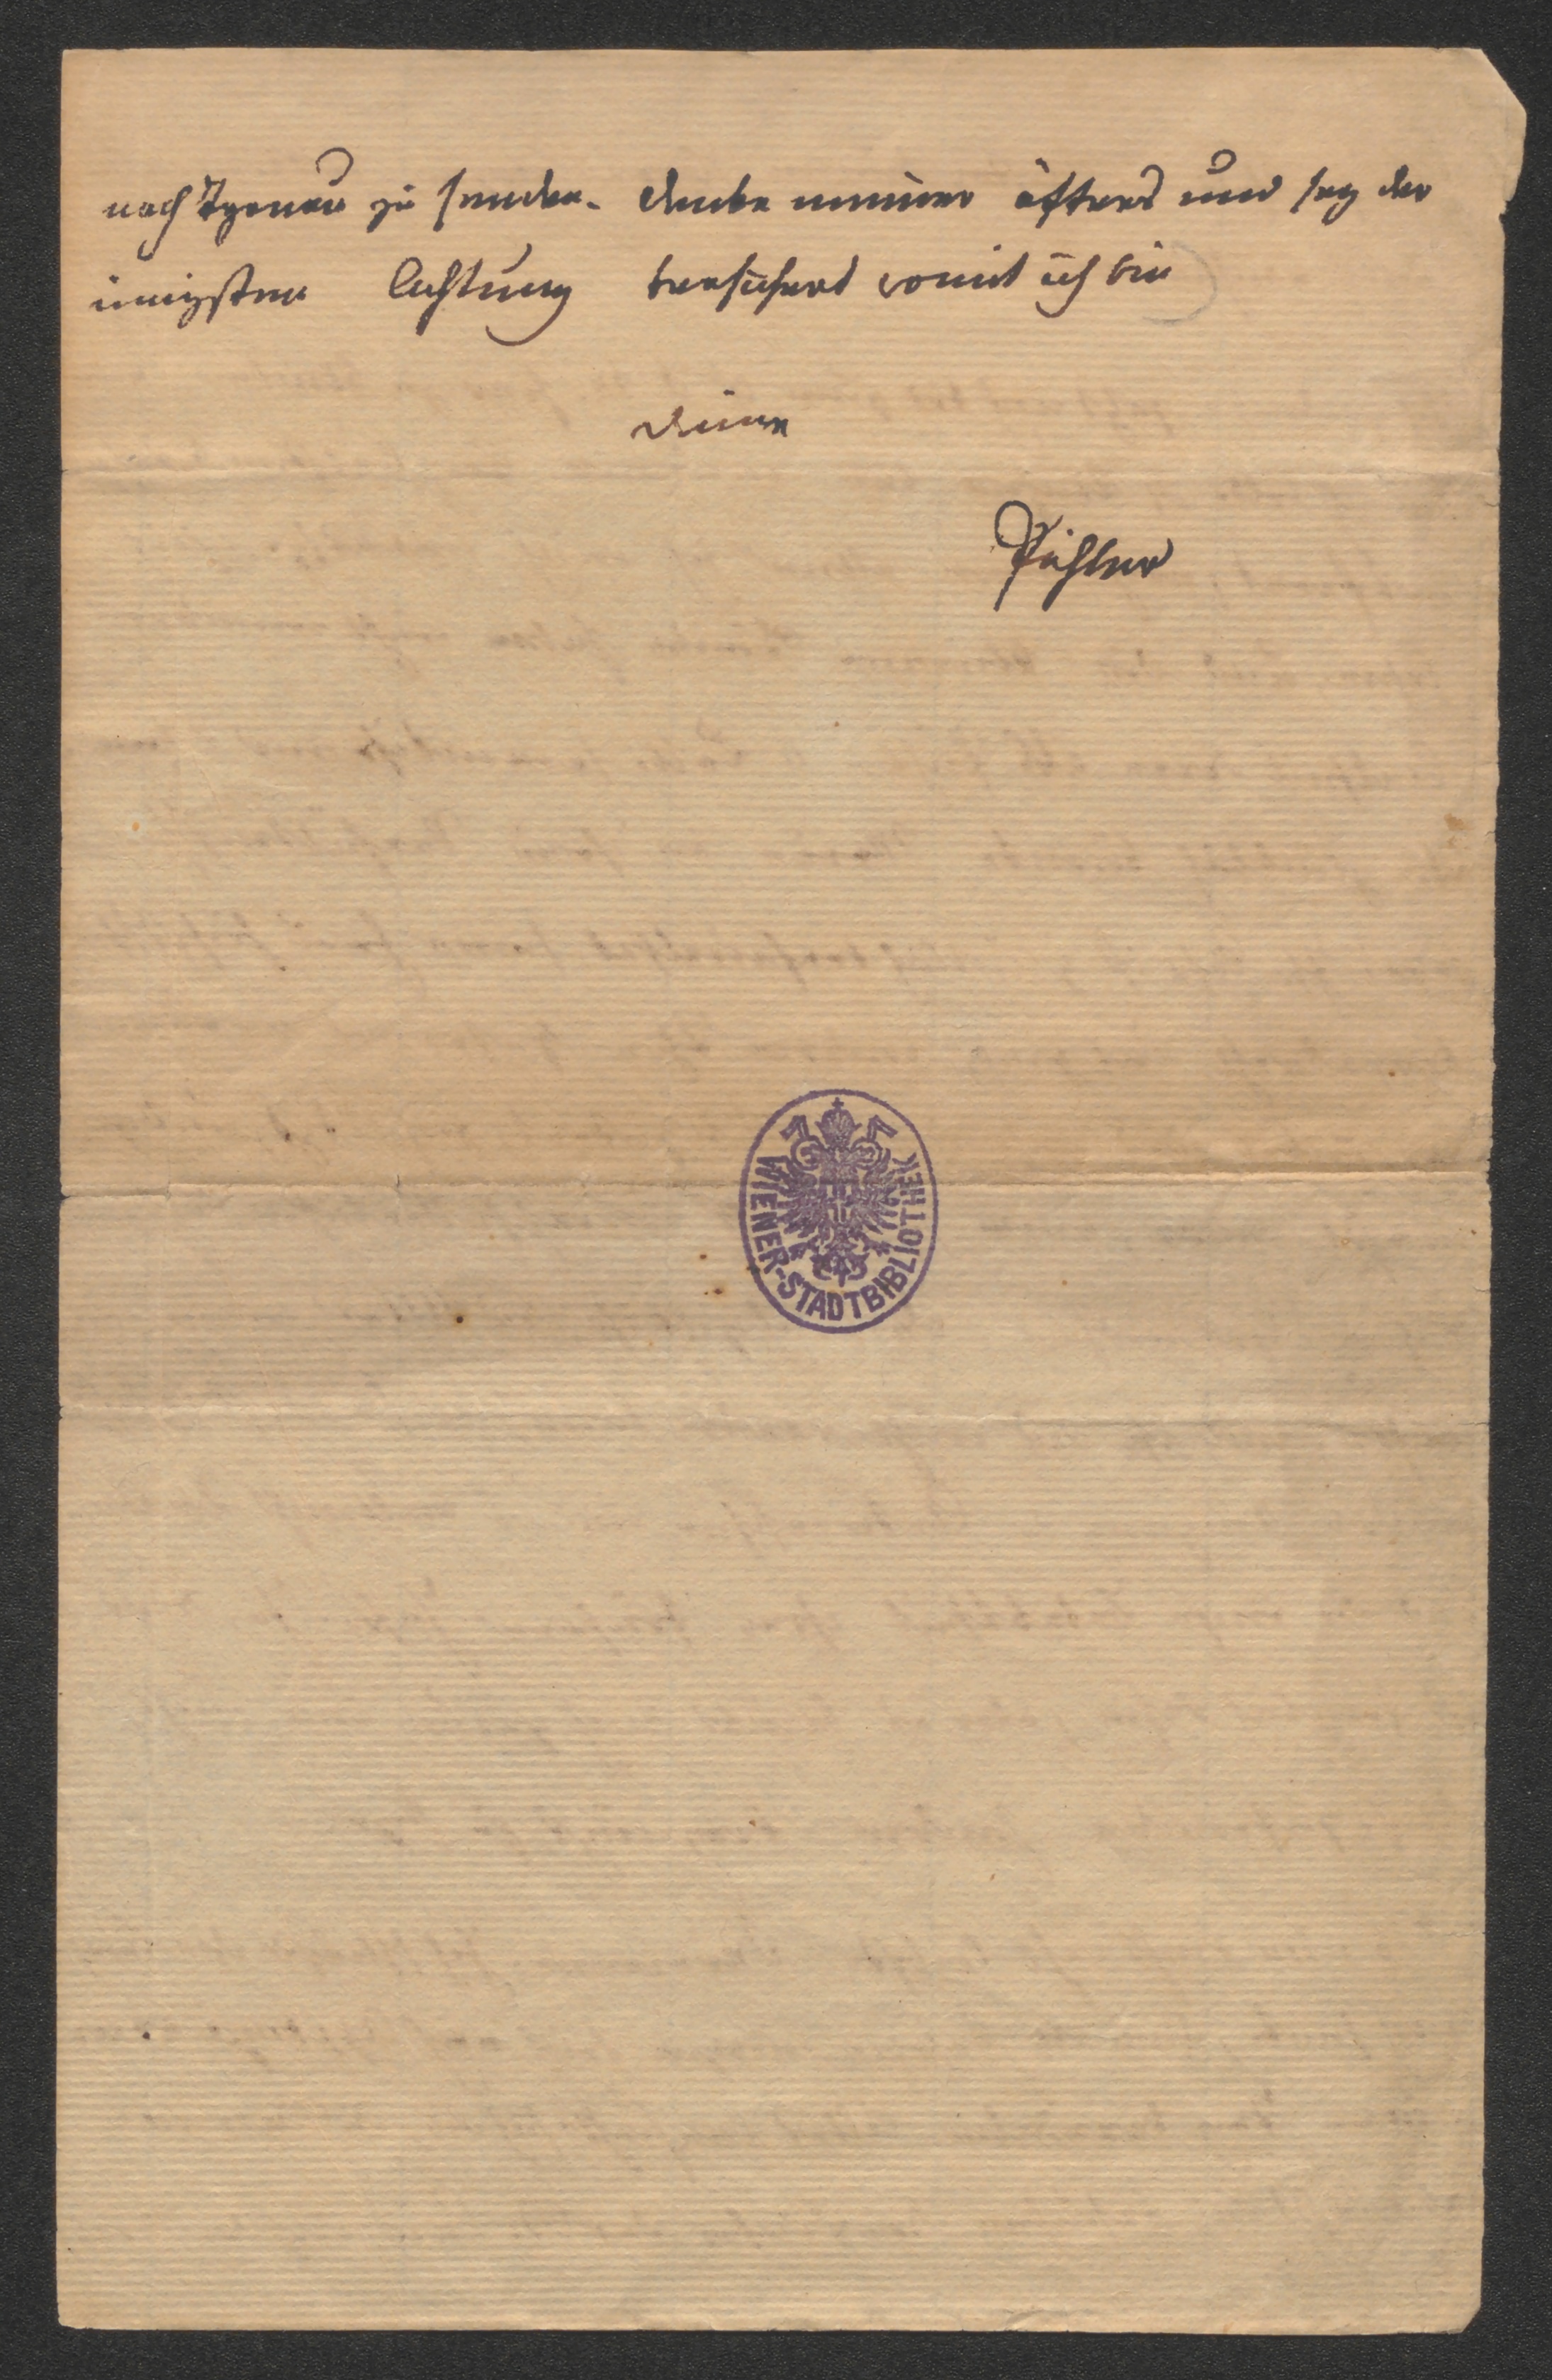 nach zu senden. denke meiner öfters und sey der
innigsten Achtung versichert womit ich bin
deine
Pichler
WIENER-STADTBIBLIOTHEK